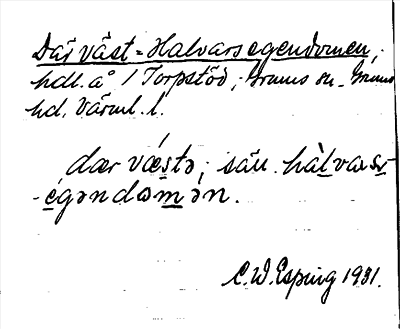 Där väst = Halvarsegendomen,
hdl. å 1 Torpstöd, Grums sn. Grums
hd. Värml. l.
dær væ̀stə, säu. hàlvaʂ
-egəndomən.
C.W. Esping 1931.